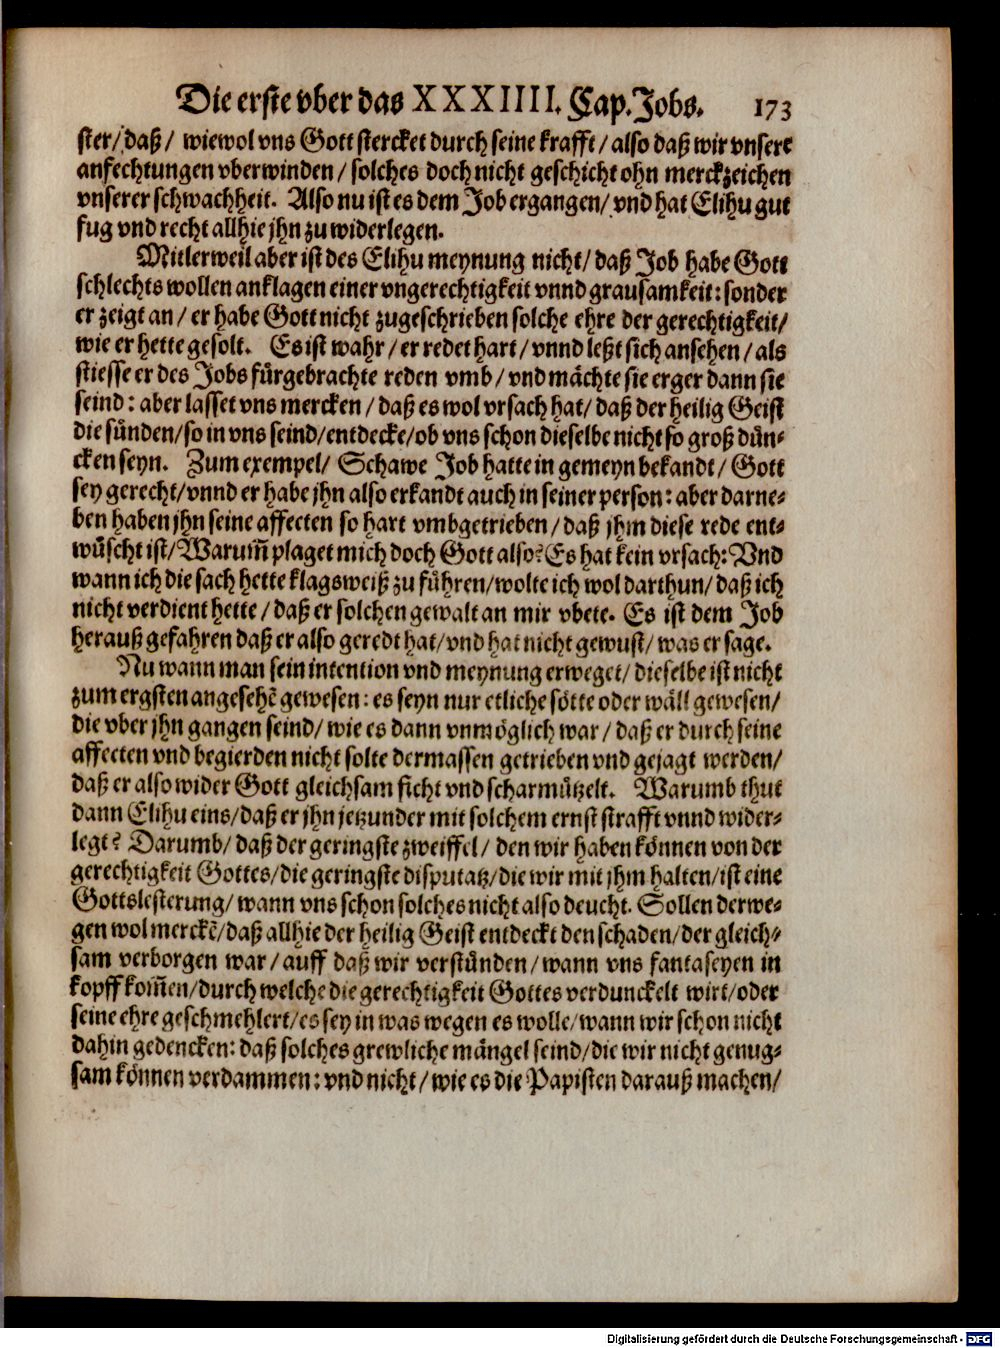 Die erste vber das XXXIIII. Cap. Jobs. 173
ster/ daß/ wiewol vns Gott stercket durch seine krafft/ also daß wir vnsere
anfechtungen vberwinden/ solches doch nicht geschicht ohn merckzeichen
vnserer schwachheit. Also nu ist es dem Job ergangen/ vnd hat Elihu gut
fug vnd recht allhie jhn zu widerlegen.
Mitlerweil aber ist des Elihu meynung nicht/ daß Job habe Gott
schlechts wollen anklagen einer vngerechtigkeit vnnd grausamkeit: sonder
er zeigt an/ er habe Gott nicht zugeschrieben solche ehre der gerechtigkeit/
wie er hette gesolt. Es ist wahr/ er redet hart/ vnnd leßt sich ansehen/ als
stiesse er des Jobs fürgebrachte reden vmb/ vnd mächte sie erger dann sie
seind: aber lasset vns mercken/ daß es wol vrsach hat/ daß der heilig Geist
die sünden/ so in vns seind/ entdecke/ ob vns schon dieselbe nicht so groß dün-
cken seyn. Zum exempel/ Schawe Job hatte in gemeyn bekandt/ Gott
sey gerecht/ vnnd er habe jhn also erkandt auch in seiner person: aber darne-
ben haben jhn seine affecten so hart vmbgetrieben/ daß jhm diese rede ent-
wüscht ist/ Warum̃ plaget mich doch Gott also? Es hat kein vrsach: Vnd
wann ich die sach hette klagsweiß zu führen/ wolte ich wol darthun/ daß ich
nicht verdient hette/ daß er solchen gewalt an mir vbete. Es ist dem Job
herauß gefahren daß er also geredt hat/ vnd hat nicht gewust/ was er sage.
Nu wann man sein intention vnd meynung erweget/ dieselbe ist nicht
zum ergsten angesehẽ gewesen: es seyn nur etliche sötte oder wäll gewesen/
die vber jhn gangen seind/ wie es dann vnmöglich war/ daß er durch seine
affecten vnd begierden nicht solte dermassen getrieben vnd gejagt werden/
daß er also wider Gott gleichsam ficht vnd scharmützelt. Warumb thut
dann Elihu eins/ daß er jhn jetzunder mit solchem ernst strafft vnnd wider-
legt? Darumb/ daß der geringste zweiffel/ den wir haben können von der
gerechtigkeit Gottes/ die geringste disputatz/ die wir mit jhm halten/ ist eine
Gottslesterung/ wann vns schon solches nicht also deucht. Sollen derwe-
gen wol merckẽ/ daß allhie der heilig Geist entdeckt den schaden/ der gleich-
sam verborgen war/ auff daß wir verstünden/ wann vns fantaseyen in
kopff kom̃en/ durch welche die gerechtigkeit Gottes verdunckelt wirt/ oder
seine ehre geschmehlert/ es sey in was wegen es wolle/ wann wir schon nicht
dahin gedencken: daß solches grewliche mängel seind/ die wir nicht genug-
sam können verdammen: vnd nicht/ wie es die Papisten darauß machen/
Digitalisierung gefördert durch die Deutsche Forschungsgemeinschaft - DFG